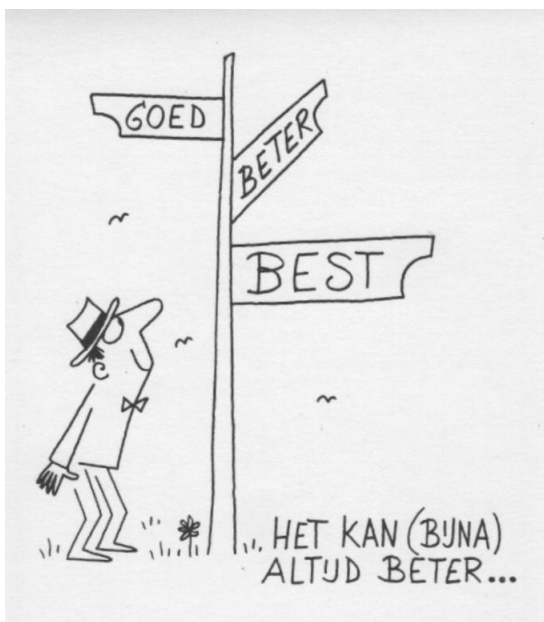 GOED
BETER
BEST
HET KAN (BIJNA)
ALTIJD BETER...